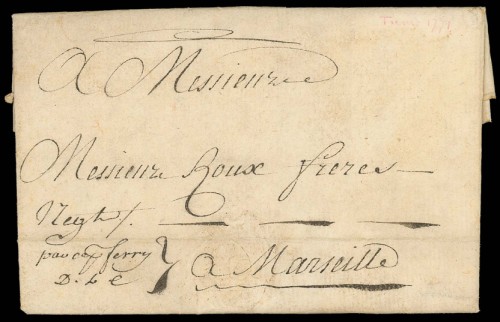 A Messieurs
Messieurs Roux freres
Negts.
par cap ferry
D. L. C
à Marseille